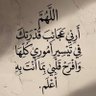 اللَّهُمَّ
أرني عجائب قدرتك
في تيسير أموري كلها
وافرح قلبي بما أنت به
أعلم.